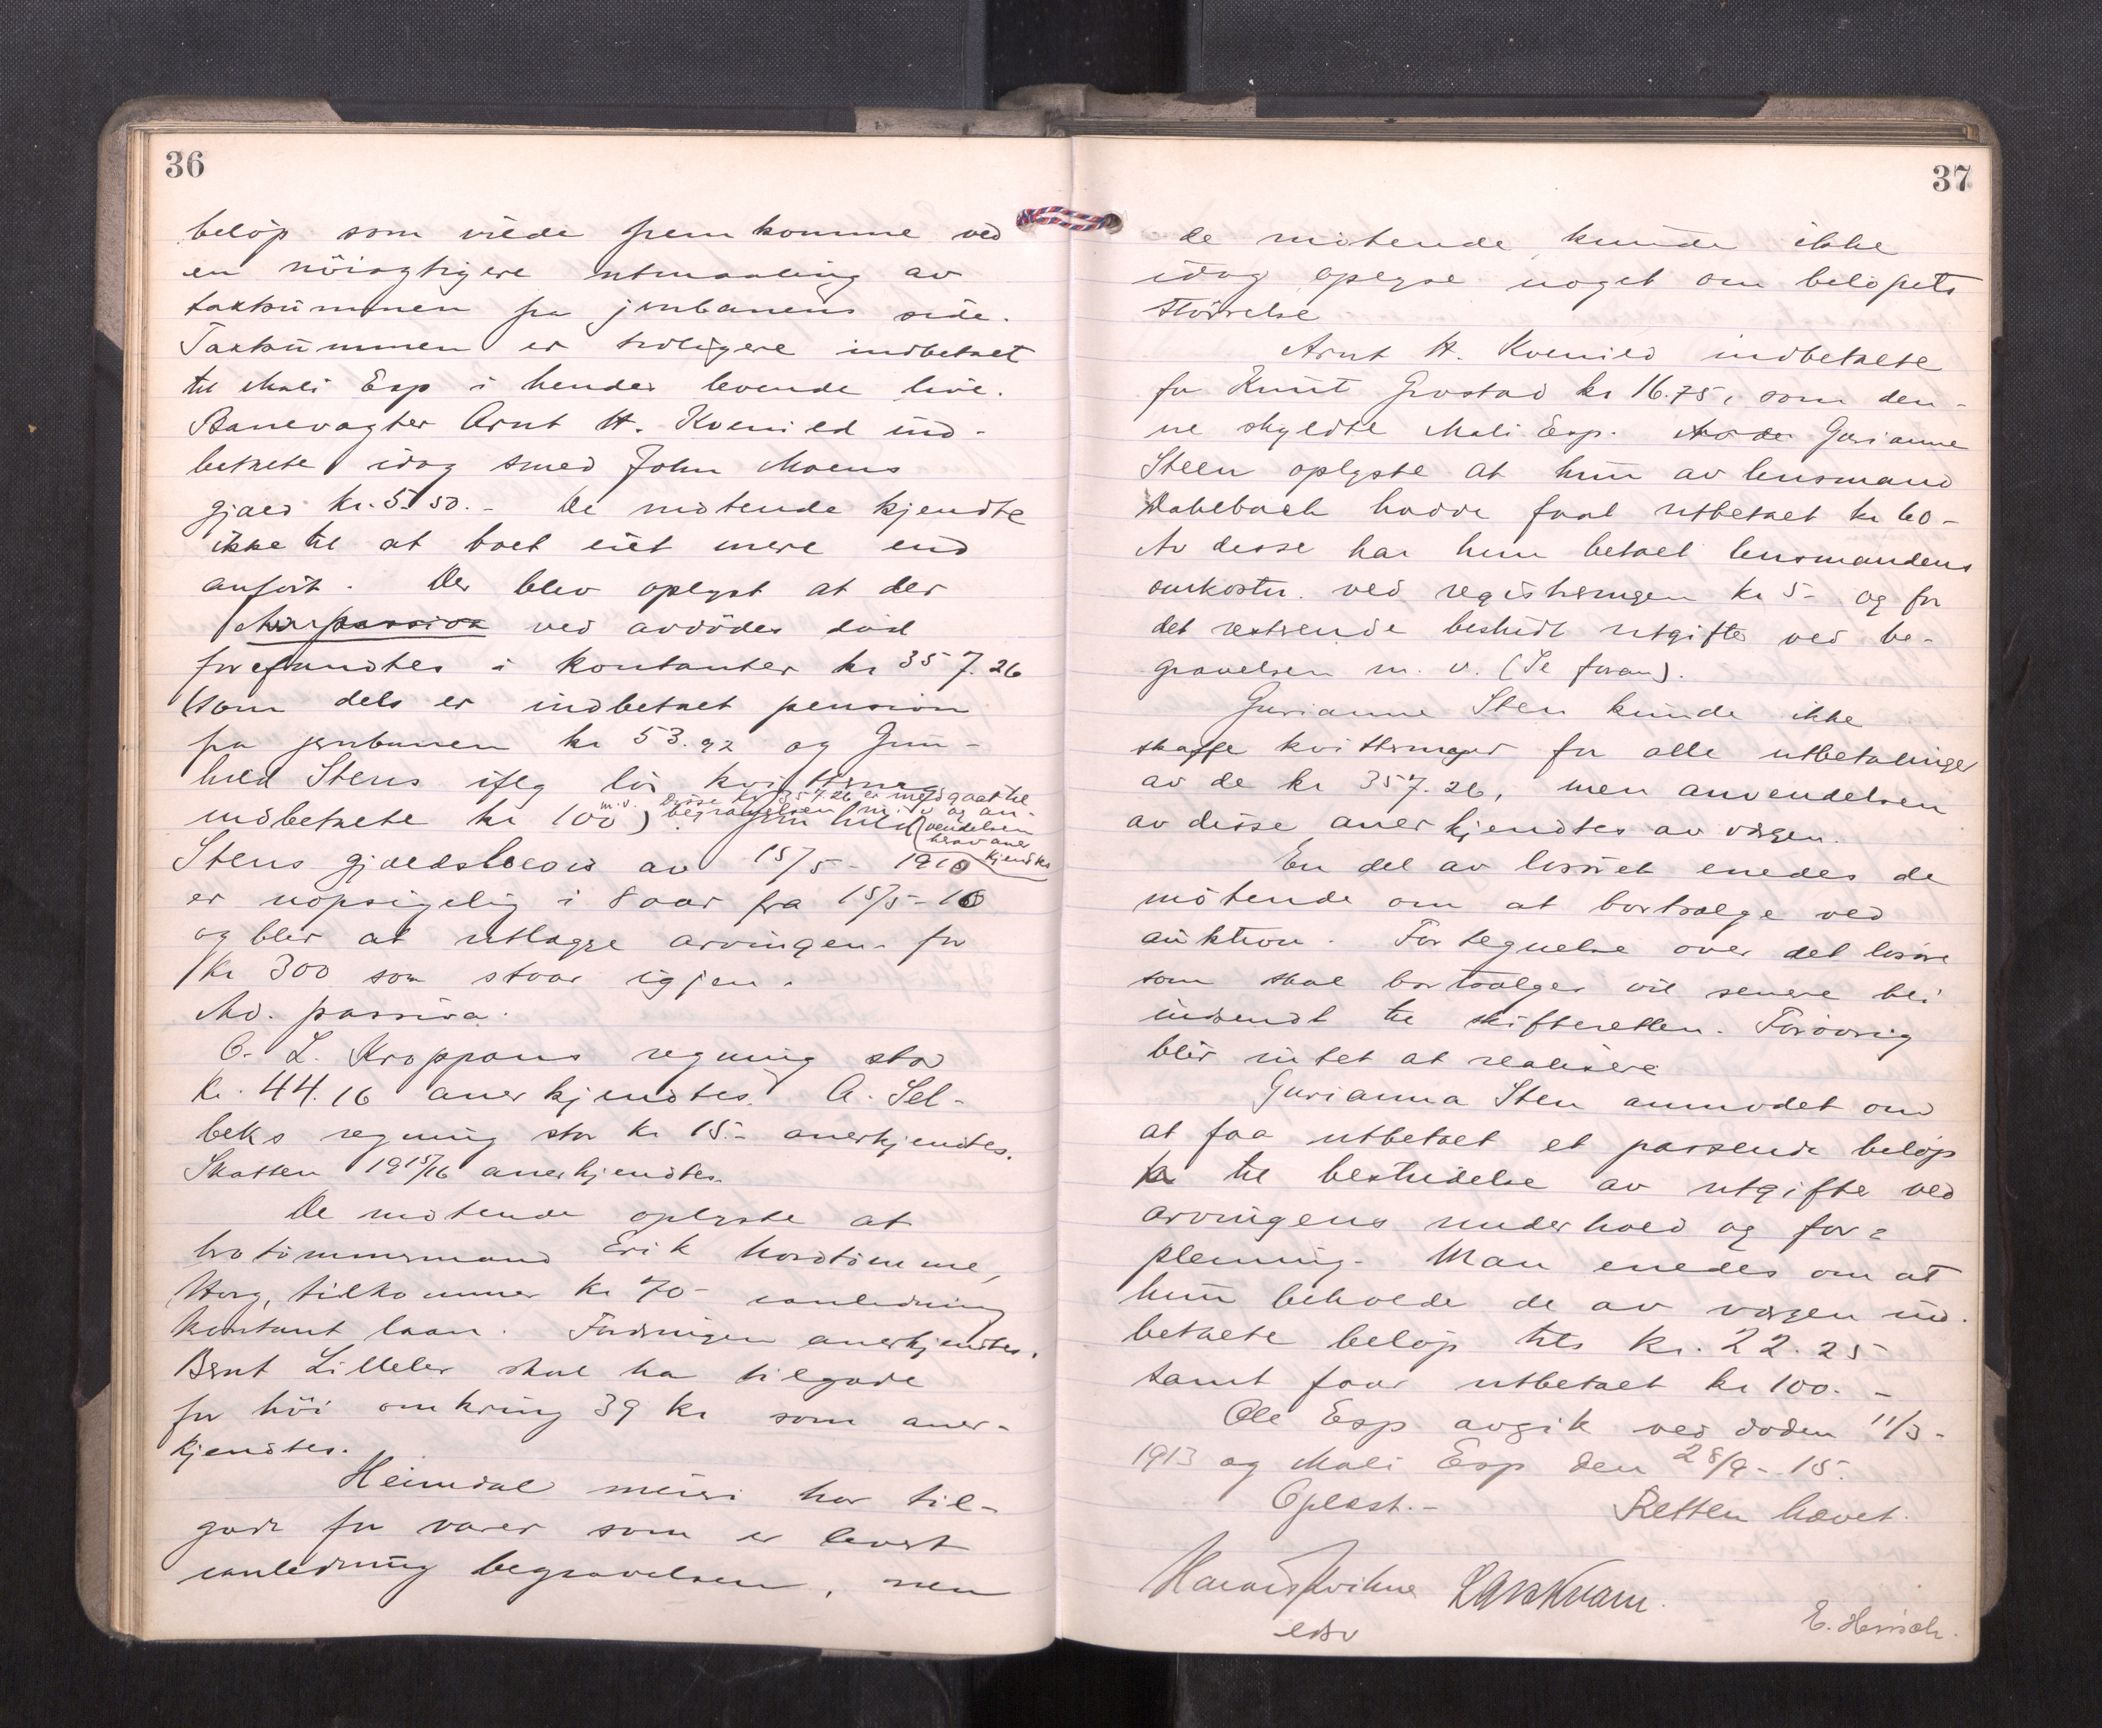 36
beløp som vilde fremkomme ved
en nøiagtigere utmaaling av
takstummen fra jernbanens side.
Takstummen er tidligere indbetalt
til Mali Esp i hendes levende live.
Banevagter Arnt H. Kvenild ind-
betalte idag smed John Moens
gjæld kr. 5.50.- De møtende kjendte
ikke til at boet eiet mere end
anført. Der blev oplyst at der
ved avdødes død
forefandtes i kontanter kr 357.26
(som dels er indbetalt pension
fra jernbanen kr 53.92 og Gun-
hild Stens ifølg løs kvittering
m.v. Disse kr 357.26 er medgaat til
begravelsen m. v. og an-
vendelsen
herav aner
kjendtes
indbetalte kr 100). Gunhild
Stens gjældsbevis av 15/5- 1910
er uopsigelig i 8 aar fra 15/5-10
og blir at utlægge arvingen for
kr 300 som staar igjen.
Ad. passiva.
O. L. Kroppans regning stor
kr. 44.16 anerkjendtes. A. Sel-
beks regning stor kr 15.- anerkjendtes.
Skatten 1915/16 anerkjendtes.
De møtende oplyste at
brotømmermand Erik Nordtømme,
Horg, tilkommer kr 70- i anledning
kontant laan. Fordringen anerkjendtes.
Bernt Lilleler skal ha tilgode
for høi omkring 39 kr som aner-
kjendtes.
Heimdal meieri har til-
gode for varer som er levert
i anledning begravelsen, men
37
de møtende kunde ikke
idag oplyse noget om beløpets
størrelse
Arnt H. Kvenild indbetalte
for Knut Grostad kr 16.75, som den-
ne skyldte Mali Esp. Gurianne
Steen oplyste at hun av lensmand
Dahlback hadde faat utbetalt kr 60-
Av disse har hun betalt lensmandens
omkostn. ved registreringen kr 5- og for
det resterende bestridt utgifter ved be-
gravelsen m. v. (Se foran).
Gurianne Sten kunde ikke
skaffe kvitteringer for alle utbetalinger
av de kr 357.26, men anvendelsen
av disse anerkjendtes av værgen.
En del av løsøret enedes de
møtende om at bortsælge ved
auktion. Fortegnelse over det løsøre
som skal bortsælges vil senere bli
indsendt til skifteretten. Forøvrig
blir intet at realisere
Gurianna Sten anmodet om
at faa utbetalt et passende beløp
til bestridelse av utgifter ved
arvingens underhold og for=
pleining. Man enedes om at
hun beholde de av værgen ind-
betalte beløp tils kr. 22.25
samt faar utbetalt kr 100.-
Ole Esp avgik ved døden 11/3-
1913 og Mali Esp den 28/9-15.
Oplæst.- Retten hævet.
Lars Kvam.
edsv